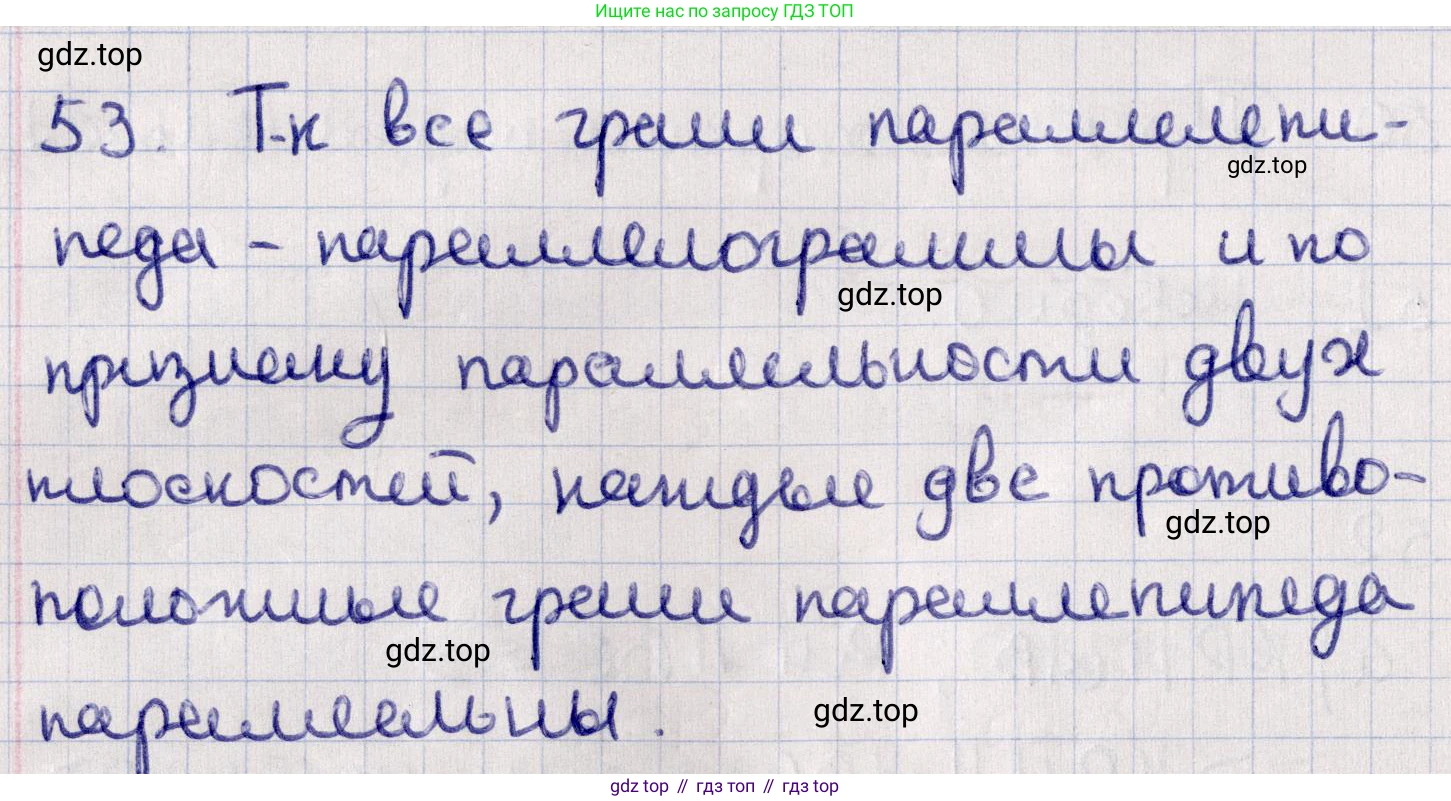 Ищите нас по запросу ГДЗ ТОП
gdz.top
53. Т-к все грани параллелепи-
gdz.top
педа - параллелограммы и по
gdz.top
признаку параллельности двух
плоскостей, каждые две противо-
gdz.top
положные грани параллепипеда
gdz.top
параллельны.
gdz.top
gdz top // гдз топ // гдз top